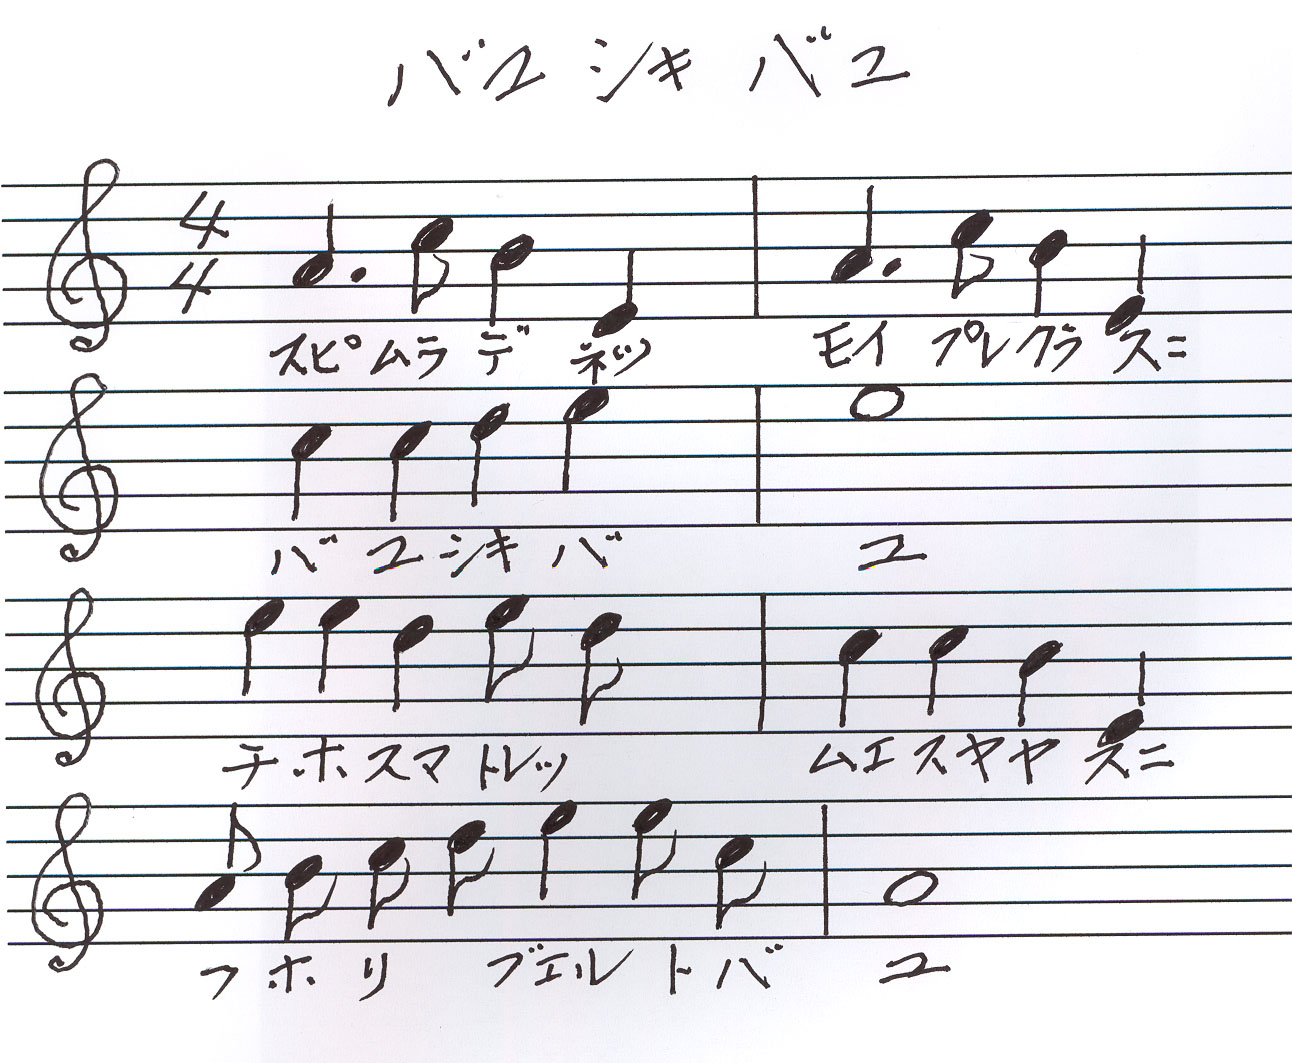 バユ シキ バユ
4
4
スピムラ デ ネツ モイ プレクラ スニ
バ ユ シキ バ ユ
テ ホ スマ トレッ ムエ スヤヤ スニ
フ ホ リ ブエル ト バ ユ